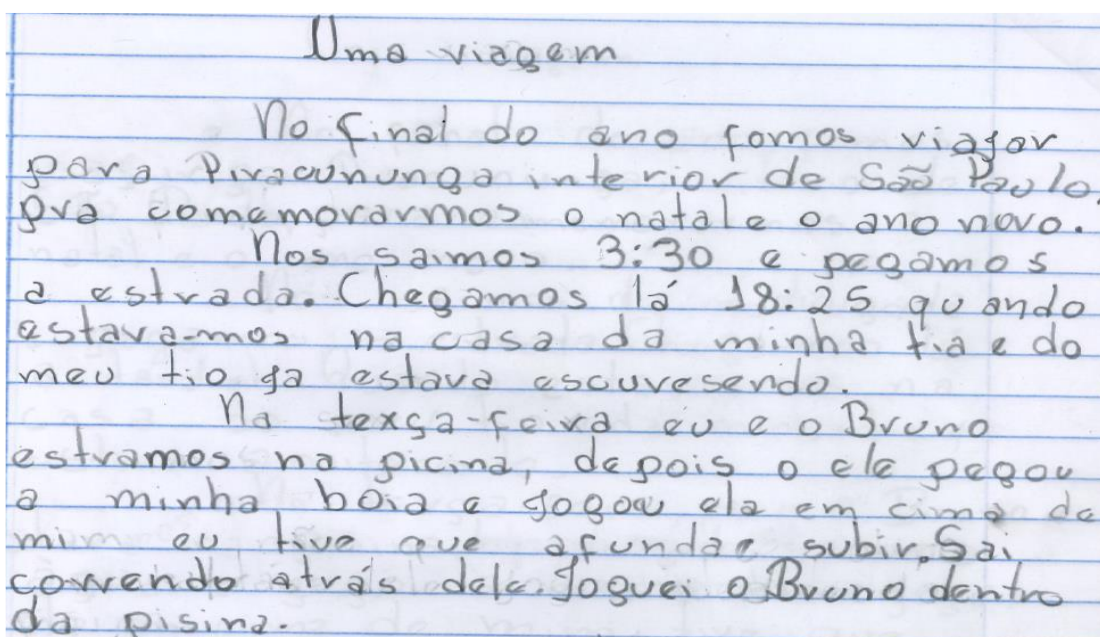 Uma viagem
No final do ano fomos viajar
para Piracununga interior de São Paulo,
pra comemorarmos o natal e o ano novo.
Nos saimos 3:30 e pegamos
a estrada. Chegamos lá 18:25 quando
estava-mos na casa da minha tia e do
meu tio ja estava escuresendo.
Na texsa-feira eu e o Bruno
estramos na picina, depois o ele pegou
a minha boia e jogou ela em cima de
mim eu tive que afundar subir. Sai
correndo atrás dele. Joguei o Bruno dentro
da pisina.